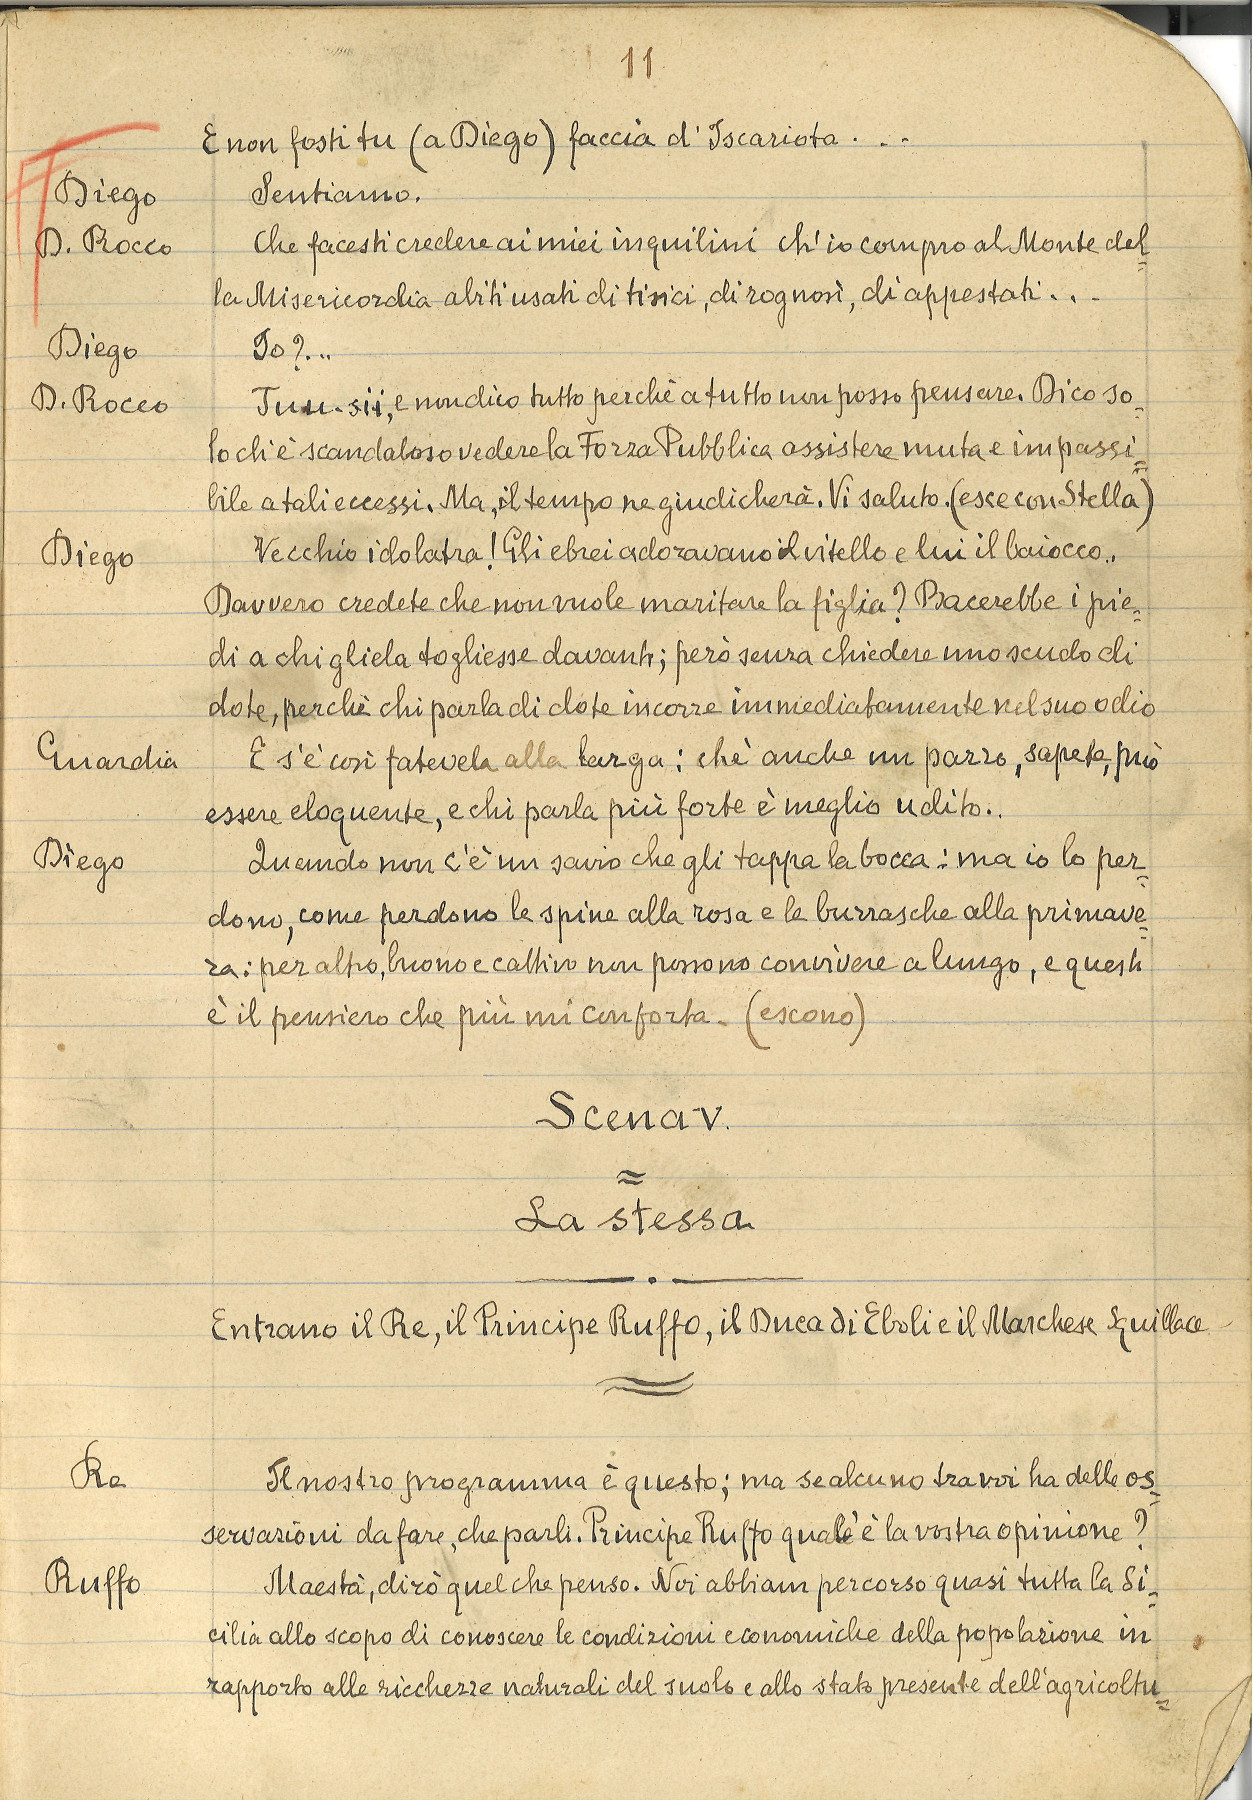 11
E non fosti tu (a Diego) faccia d'Iscariota . . .
Diego Sentiamo.
D. Rocco Che facesti credere ai miei inquilini ch'io compro al Monte del=
la Misericordia abiti usati di tisici, di rognosi, di appestati . . .
Diego Io?...
D. Rocco Tuu.. sii, e non dico tutto perchè a tutto non posso pensare. Dico so=
lo ch'è scandaloso vedere la Forza Pubblica assistere muta e impassi=
bile a tali eccessi. Ma, il tempo ne giudicherà. Vi saluto. (esce con Stella)
Diego Vecchio idolatra! Gli ebrei adoravano il vitello e lui il baiocco..
Davvero credete che non vuole maritare la figlia? Bacerebbe i pie=
di a chi gliela togliesse davanti; però senza chiedere uno scudo di
dote, perchè chi parla di dote incorre immediatamente nel suo odio
Guardia E s'è così fatevela alla larga: chè anche un pazzo, sapete, può
essere eloquente, e chi parla più forte è meglio udito..
Diego Quando non c'è un savio che gli tappa la bocca: ma io lo per=
dono, come perdono le spine alla rosa e le burrasche alla primave=
ra: per altro, buono e cattivo non possono convivere a lungo, e questi
è il pensiero che più mi conforta. (escono)
Scena V.
La stessa
Entrano il Re, il Principe Ruffo, il Duca di Eboli e il Marchese Squillace
Re Il nostro programma è questo; ma se alcuno tra voi ha delle os=
servazioni da fare, che parli. Principe Ruffo qual'è la vostra opinione?
Ruffo Maestà, dirò quel che penso. Noi abbiam percorso quasi tutta la Si=
cilia allo scopo di conoscere le condizioni economiche della popolazione in
rapporto alle ricchezze naturali del suolo e allo stato presente dell'agricoltu=